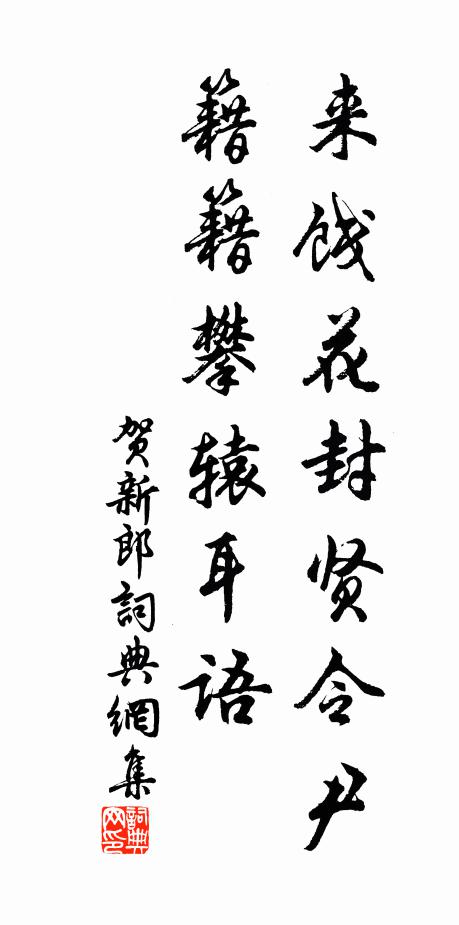 来饯花封贤令尹
籍籍攀辕耳语
贺新郎詞典網集
詞典网印